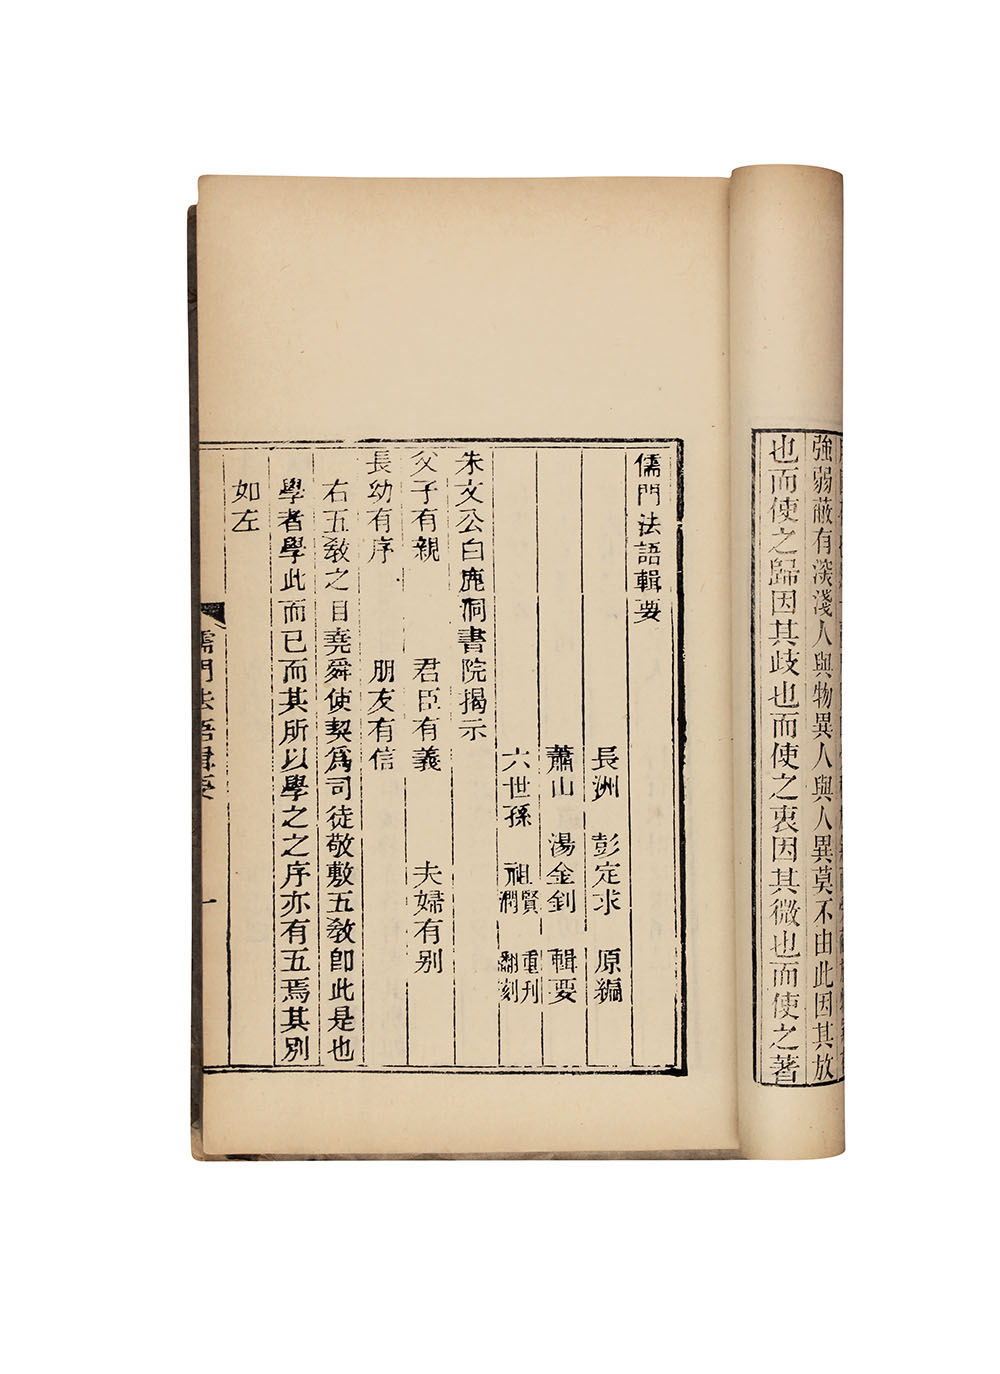 強弱蔽有淡淺人與物異人與人異莫不由此因其放
也而使之歸因其歧也而使之衷因其微也而使之著
儒門法語輯要
長洲 彭定求 原編
蕭山 湯金釗 輯要
六世孫 祖賢潤 重刊翻刻
朱文公白鹿洞書院揭示
父子有親 君臣有義 夫婦有别
長幼有序 朋友有信
右五敎之目堯舜使契爲司徒敬敷五敎卽此是也
學者學此而已而其所以學之之序亦有五焉其別
如左
儒門法語輯要 一